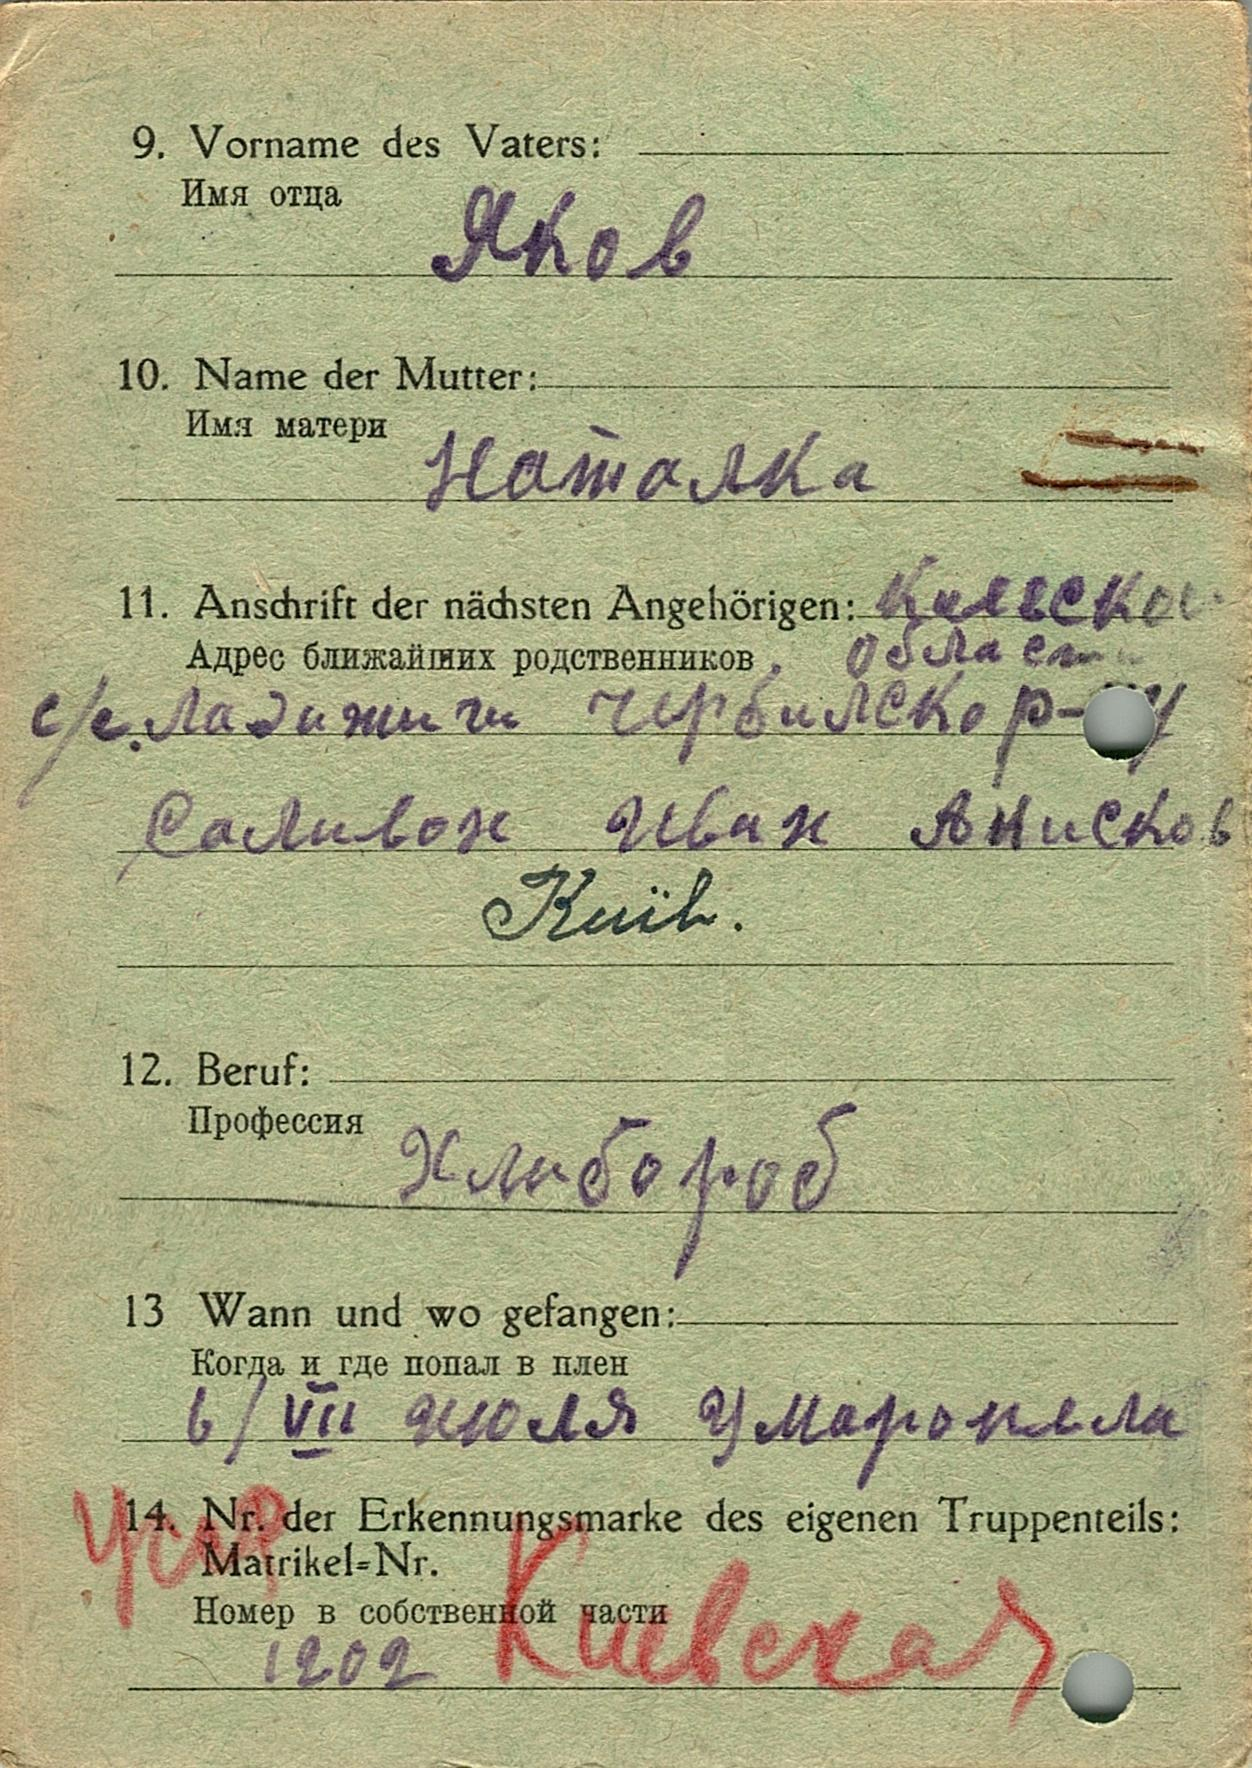 9. Vorname des Vaters:
Имя отца
Яков
10. Name der Mutter:
Имя матери
Наталка
11. Anschrift der nächsten Angehörigen: Киевской
Адрес ближайших родственников. области
с/с. Ладижичи Чербилско р-ну
Саливон Иван Анисков
Київ.
12. Beruf:
Профессия
Хлибороб
13 Wann und wo gefangen:
Когда и где попал в плен
6/VII июля
14. Nr. der Erkennungsmarke des eigenen Truppenteils:
Matrikel=Nr.
Номер в собственной части
УССР Киевская
1202